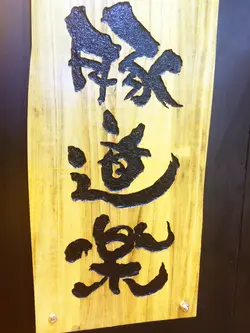 豚道楽